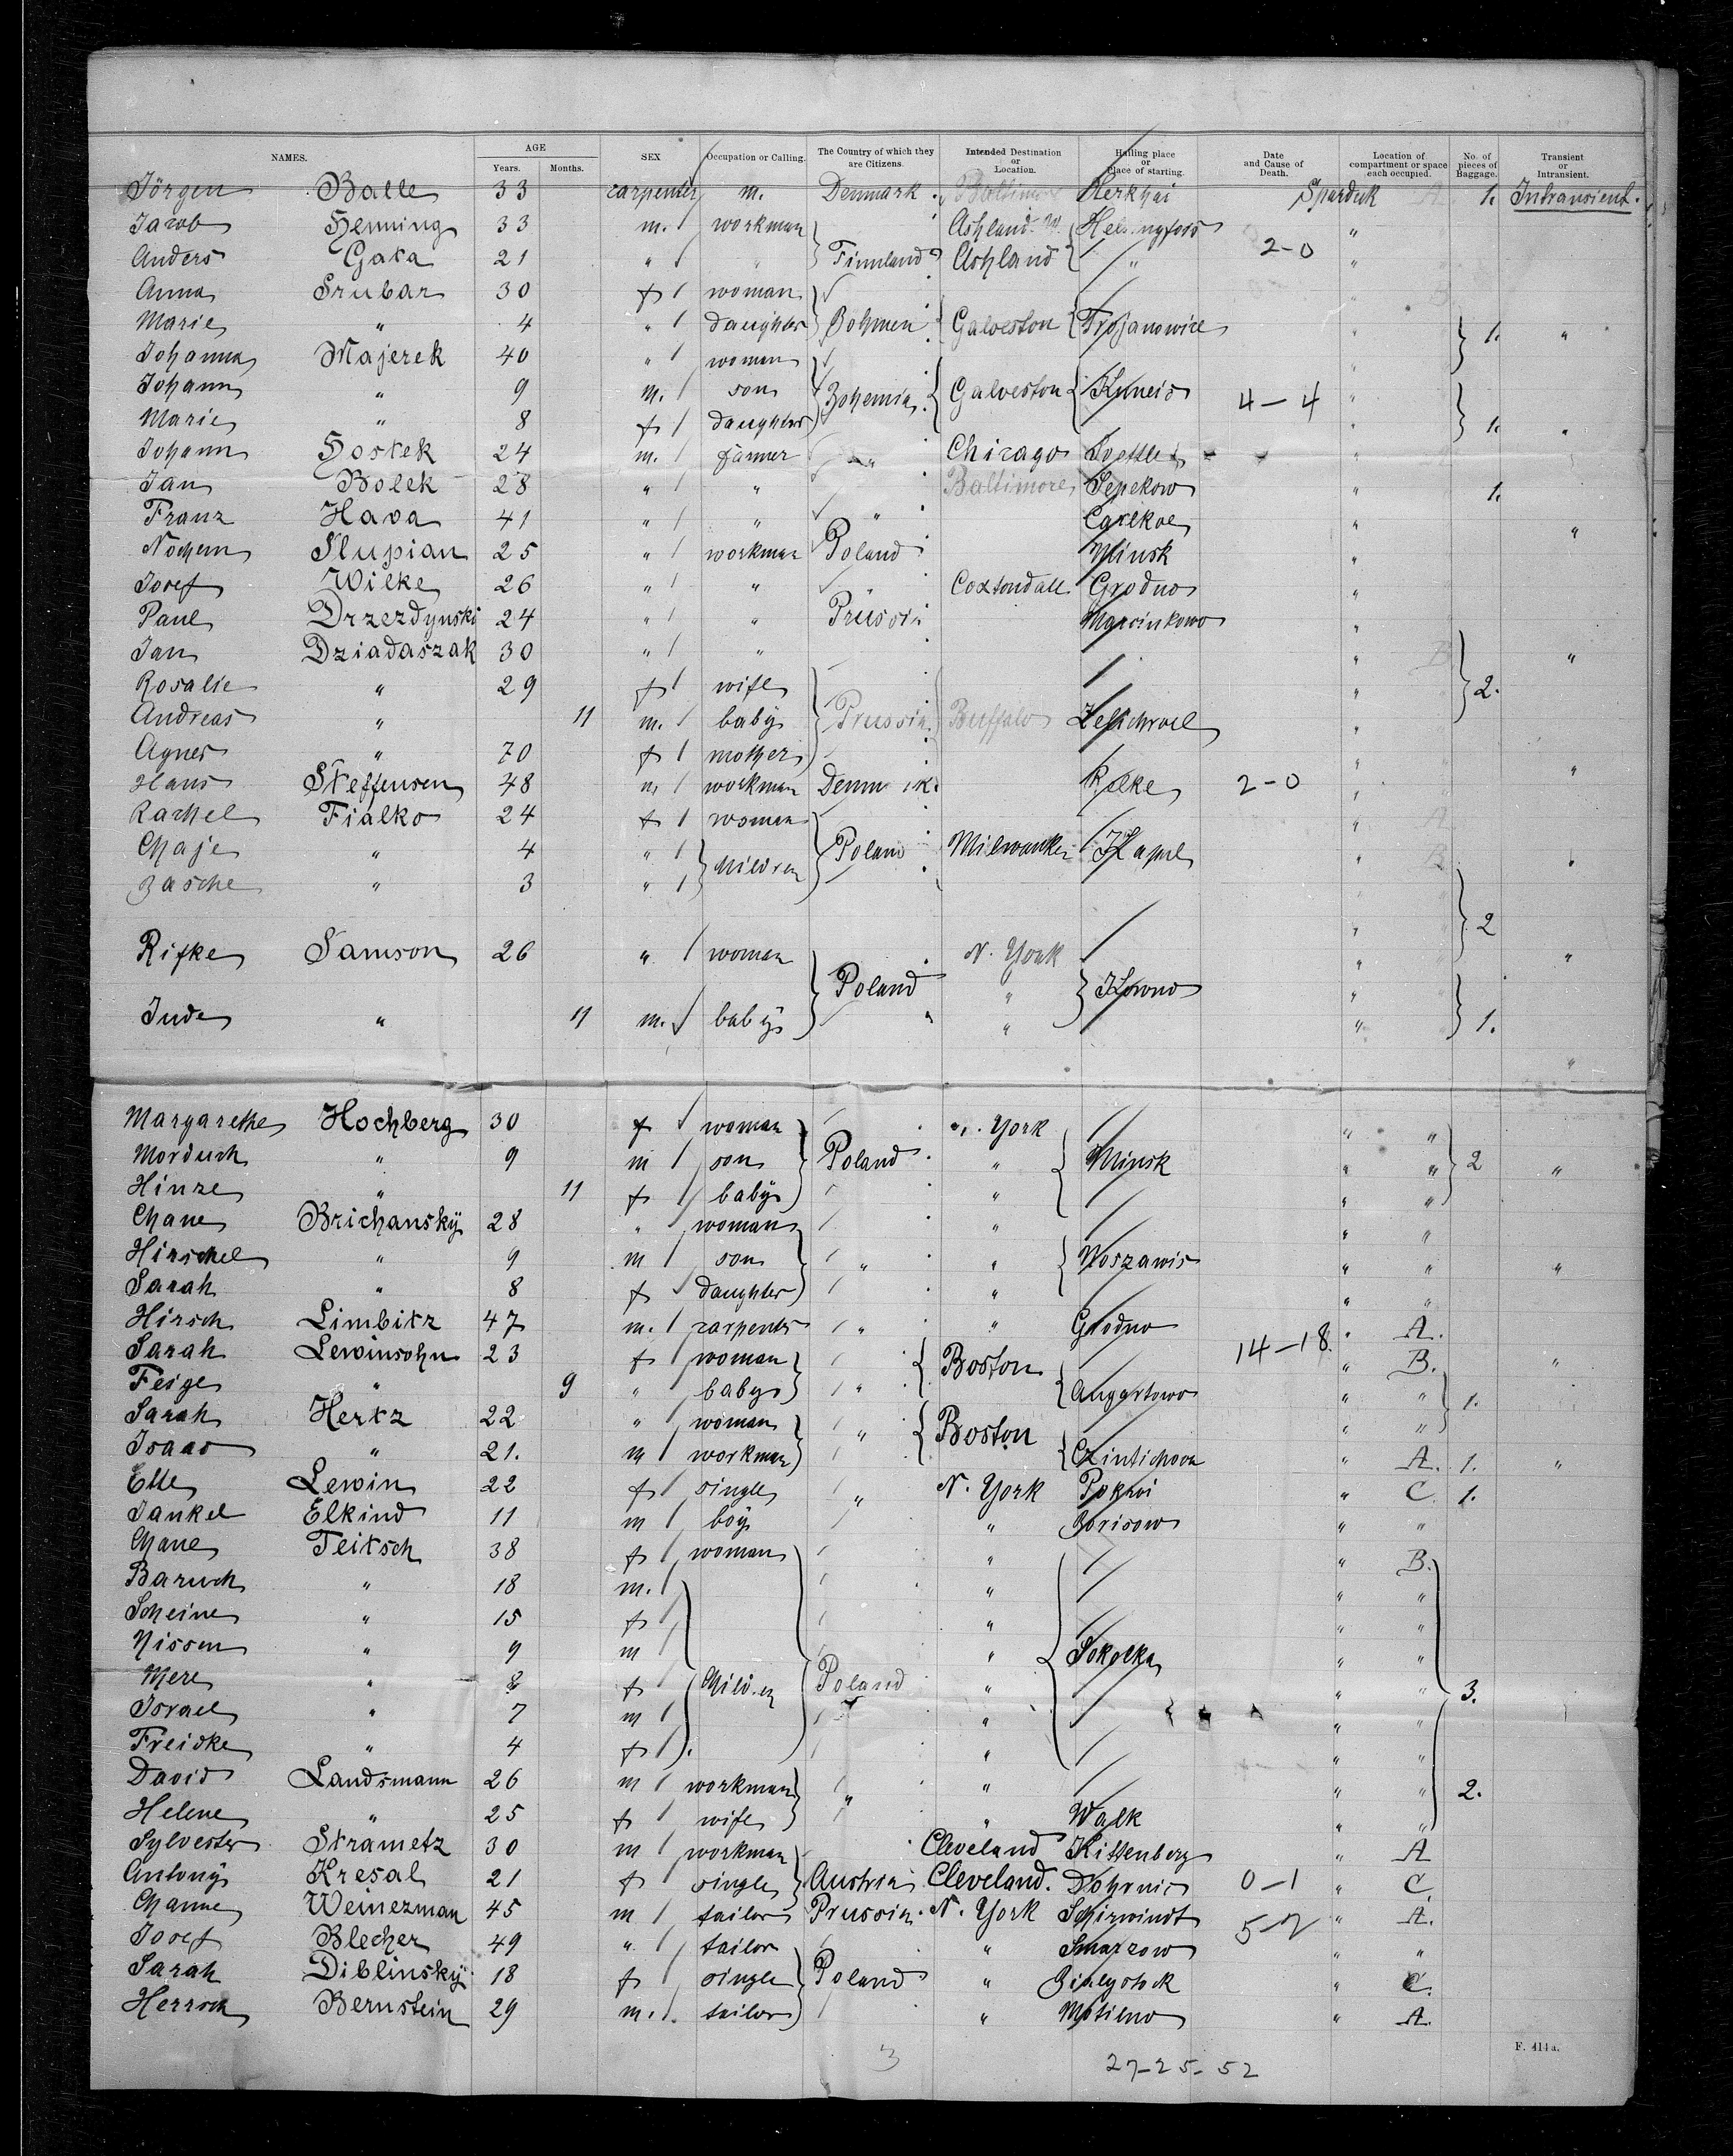 NAMES. AGE Years. Months. SEX Occupation or Calling. The Country of which they are Citizens. Intended Destination or Location. Hailing place or Place of starting. Date and Cause of Death. Location of compartment or space each occupied. No. of pieces of Baggage. Transient or Intransient.
Jörgen Balle 33 carpenter m. Denmark. 1. Intransient.
Jacob Henning 33 m. workman Ashland Helsingfors "
Anders Gata 21 " " Finnland Ashland " 2-0 "
Anna Srubar 30 f woman
Marie " 4 " daughter Bohmen Galveston Trojanowice " 1. "
Johanna Majerek 40 " woman
Johann " 9 m. son Bohemia Galveston 4-4 "
Marie " 8 f daughter " 1. "
Johann Hostek 24 m. farmer " Chicago "
Jan Bolek 28 " " Baltimore Sepekow " 1.
Franz Hava 41 " " " " "
Nochem Slupian 25 " workman Poland Minsk "
Josef Wilke 26 " " " Grodno "
Paul Drzezdynski 24 " " Prussia Marcinkowo "
Jan Dziadaszak 30 " " " B "
Rosalie " 29 f wife " 2.
Andreas " 11 m. baby Prussia Buffalo "
Agnes " 70 f mother " "
Hans Steffensen 48 m workman Denm k. 2-0 "
Rachel Fialko 24 f woman "
Chaje " 4 " children Poland Milwaukee Kapel "
Basche " 3 "
2
Rifke Samson 26 " woman N. York " "
Poland " Kowno "
Jude " 11 m. baby " " 1.
"
Margarethe Hochberg 30 f woman N. York " "
Morduch " 9 m son Poland " Minsk " " 2 "
Hinze " 11 f baby " " "
Chane Brichansky 28 " woman " " "
Hirschel " 9 m son " " Woszawis " " "
Sarah " 8 f daughter " " "
Hirsch Limbitz 47 m. carpenter " " Grodno " A.
Sarah Lewinsohn 23 f woman Boston 14-18. " B. "
Feige " 9 " baby " Augustowo " " 1.
Sarah Hertz 22 " woman " Boston " "
Isaac " 21. m workman " A. 1. "
Ette Lewin 22 f single " N. York Pokroi " C. 1.
Jankel Elkind 11 m boy " Borisow " "
Chane Teitsch 38 f woman " " B.
Baruch " 18 m. " " "
Scheine " 15 f " " "
Nissen " 9 m " Sokolka " "
Mere " 8 f children Poland " " " 3.
Israel " 7 m " " "
Freidke " 4 f " " "
David Landsmann 26 m workman " " " " 2.
Helene " 25 f wife " Walk " "
Sylvester Strametz 30 m workman Cleveland Kittenberg " A
Antony Kresal 21 f single Austria Cleveland. Dobrnic 0-1 " C.
Channe Weinerman 45 m tailor Prussia. N. York Schirwindt 5-7 " A.
Josef Blecher 49 " tailor " Smarzow " "
Sarah Diblinsky 18 f single Poland " Bialystock " C.
Herrsch Bernstein 29 m. tailor " " A.
F. 414a.
3 27-25-52